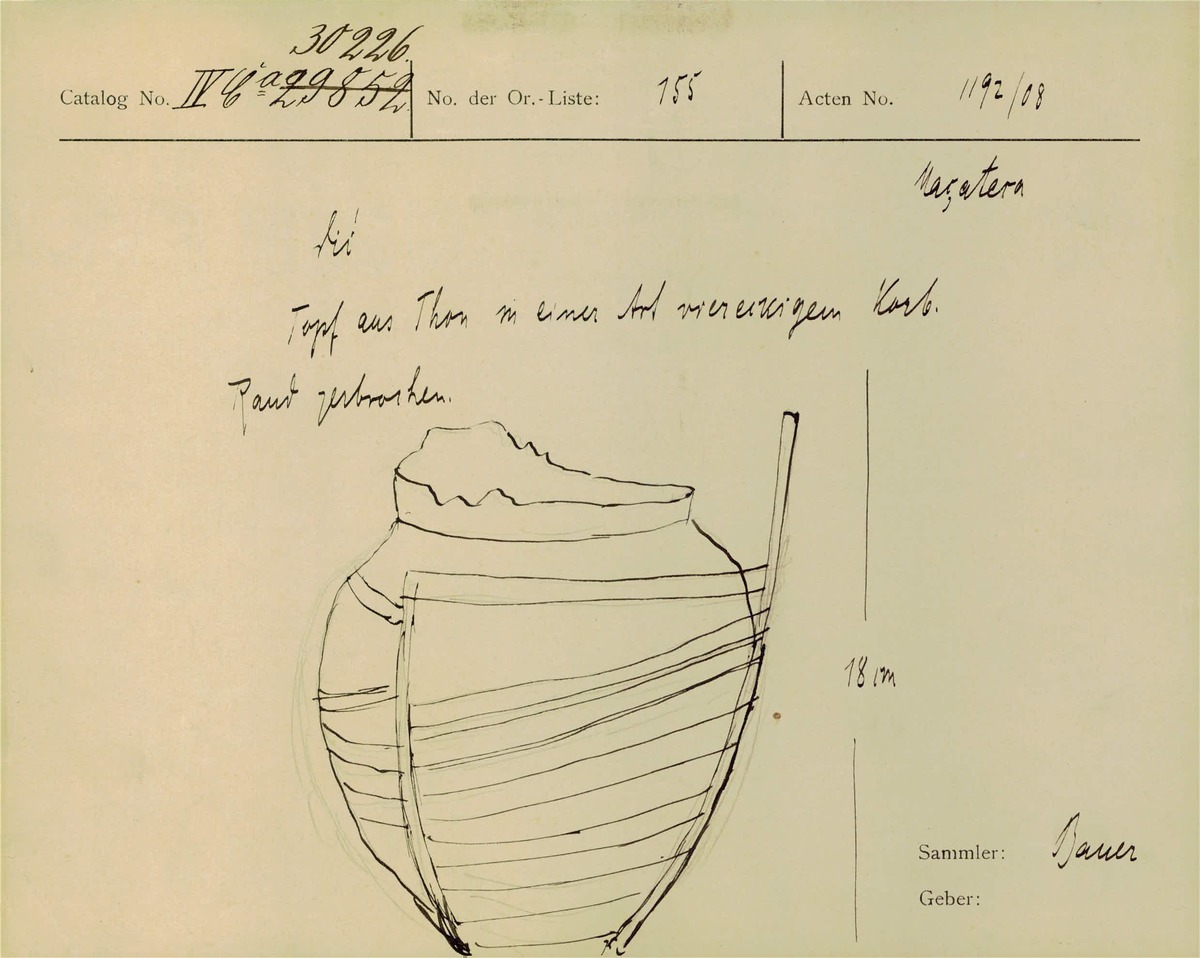 30226.
Catalog No. IV Ca 29852
No. der Or.-Liste: 155
Acten No. 1192/08
Maçatera
dii
Topf aus Thon in einer Art viereckigem Korb.
Rand zerbrochen.
18 cm
Sammler: Bauer
Geber: